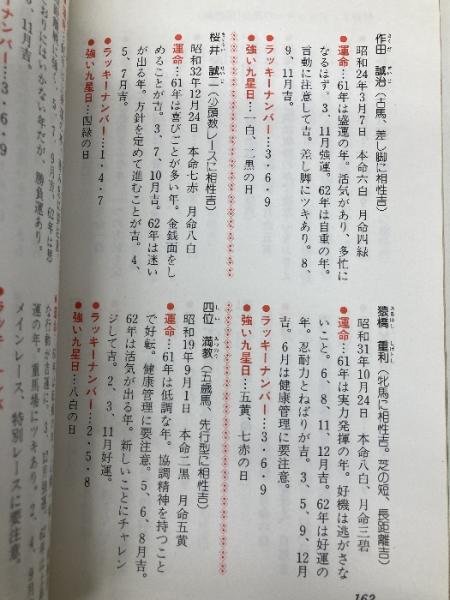 作田 誠治(古馬、差し脚に相性吉)
さくた せいじ
昭和24年3月7日 本命六白 月命四緑
●運命…61年は盛運の年。活気があり、多忙に
なるはず。3、11月強運。62年は自重の年。
言動に注意して吉。差し脚にツキあり。8、
9、11月吉。
●ラッキーナンバー…3・6・9
●強い九星日…一白、二黒の日
桜井 誠二(少頭数レースに相性吉)
昭和32年12月24日 本命七赤 月命八白
●運命…61年は喜びごとが多い年。金銭面をし
めることが吉。3、7、10月吉。62年は迷い
が出る年。方針を定めて進むことが吉。4、
5、7月吉。
●ラッキーナンバー…1・4・7
●強い九星日…四緑の日
猿橋 重利(牝馬に相性吉。芝の短、長距離吉)
さるはし しげとし
昭和31年10月24日 本命八白、月命三碧
●運命…61年は実力発揮の年。好機は逃がさな
いこと。6、8、11、12月吉。62年は好運の
年。忍耐力とねばりが吉。3、5、9、12月
吉。6月は健康管理に要注意。
●ラッキーナンバー…3・6・9
●強い九星日…五黄、七赤の日
四位 満教(五歳馬、先行型に相性吉)
しい みつのり
昭和19年9月1日 本命二黒 月命五黄
●運命…61年は低調な年。協調精神を持つこと
で好転。健康管理に要注意。5、6、8月吉。
62年は活気が出る年。新しいことにチャレン
ジして吉。2、3、11月好運。
●ラッキーナンバー…2・5・8
●強い九星日…八白の日
ーナンバー…3・6・9
、11月吉。
勝負運あり。
メインレース、特別レースに要注意。
162